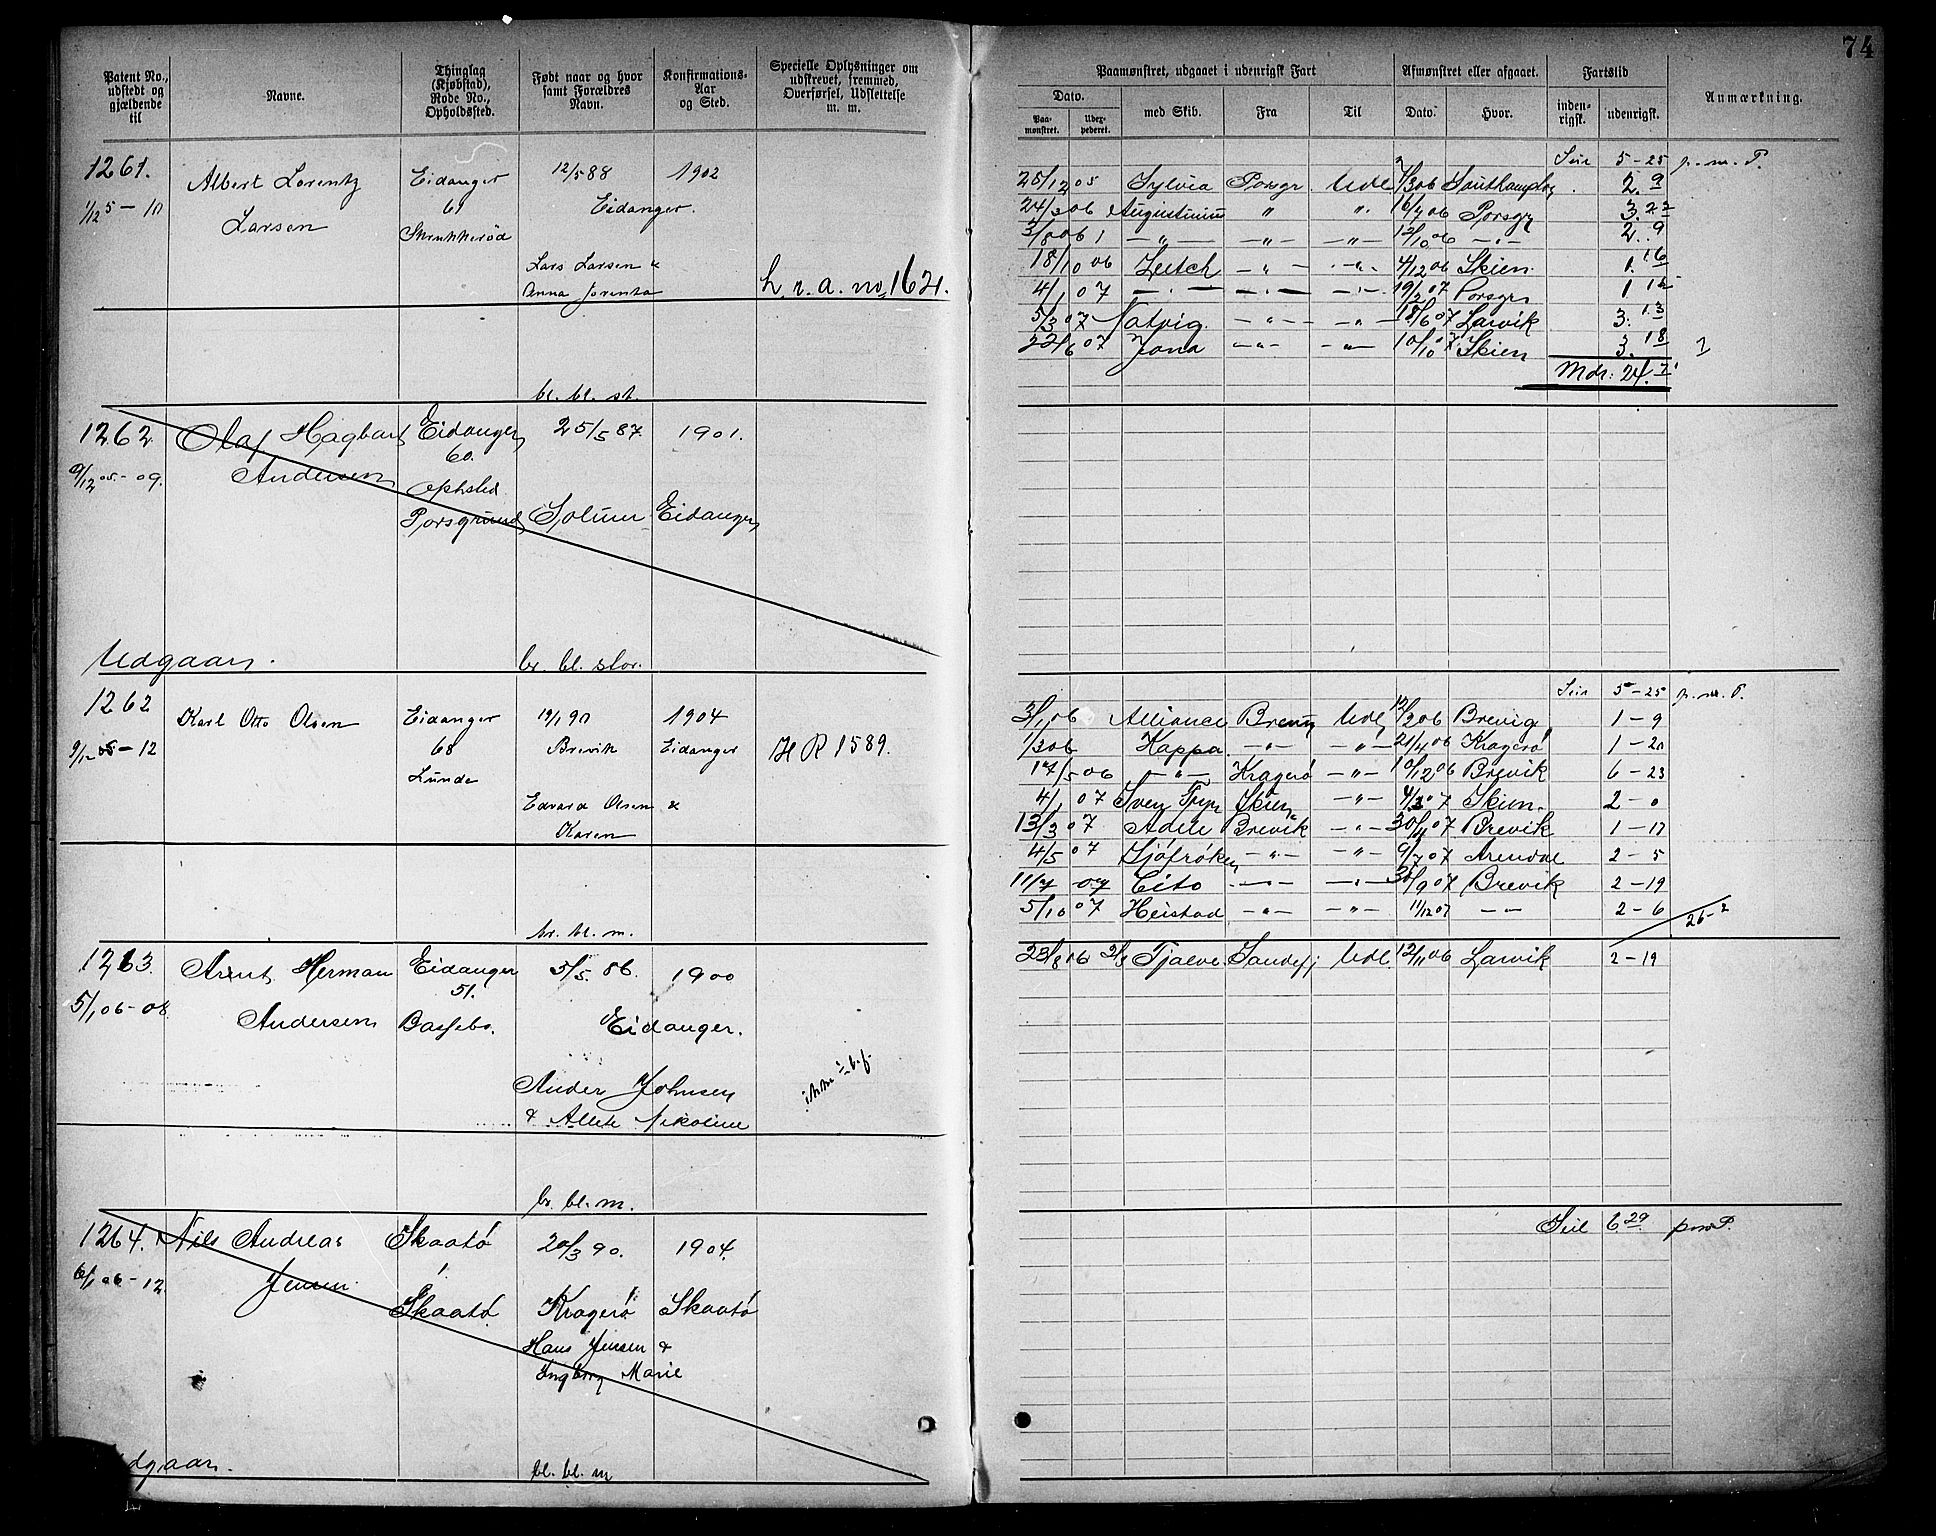 74
Patent No., udstedt og gjældende til
Navne.
Thinglag (Kjøbsted), Rode No., Opholdssted.
Født naar og hvor samt Forældres Navn.
Konfirmations-Aar og Sted.
Specielle Oplysninger om udskrevet, fremmed, Overførsel, Udslettelse m. m.
Paamønstret, udgaaet i udenrigsk Fart
Afmønstret eller afgaaet.
Fartstid
Anmærkning.
Dato.
Paa-mønstret.
med Skib.
Fra
Til
Dato.
Hvor.
inden-rigsk.
udenrigsk.
1261. Albert Lorentz Eidanger 12/5 88 1902
1/12 5 – 10 Larsen 61 Eidanger.
Lars Larsen &
Anna
L. r. a. no 1621.
bl. bl. st.
5-25 p. m. P.
25/12 05 Sylvia Porsgr Udl 06 Southampton 2. 9
24/3 06 Augustinius " " 16/7 06 Porsgr 3. 22
3/8 06 — " — — " — — " — 12/10 06 — " — 2. 9
18/10 06 — " — — " — 4/12 06 Skien 1. 16
4/1 07 — " — — " — — " — 19/2 07 Porsgr 1 15
5/3 07 Natvig. — " — — " — 18/6 07 Larvik 3. 13
22/6 07 Jona — " — — " — 10/10 07 Skien 3. 18
Mdr: 24. 7
1262 Olaf Hagbart Eidanger 25/5 87 1901.
9/12 05 - 09. Andersen 60.
ophsted
Porsgrund Solum Eidanger
Udgaar. br. bl. stor.
1262 Karl Otto Olsen Eidanger 19/1 90 1904
9/12 05 - 12 68 Brevik Eidanger H R 1589.
Lunde
Edvard Olsen &
Karen
br. bl. m.
5-25 p. m. P.
3/1 06 Alliance Brevig Udl 12/2 06 Brevig 1 – 9
1/3 06 Kappa — " — — " — 21/4 06 Kragerø 1 – 20
17/5 06 — " — Kragerø — " — 10/12 06 Brevik 6 – 23
4/1 07 Sven Skien — " — 4/3 07 Skien 2 – 0
13/3 07 Adele Brevik — " — 30/4 07 Brevik 1 – 17
4/5 07 Sjøfrøken — " — — " — 9/7 07 Arendal 2 – 5
11/7 07 Cito — " — — " — 30/9 07 Brevik 2 – 19
5/10 07 Heistad — " — — " — 11/12 07 — " — 2 – 6
26-2
1263. Arnt Herman Eidanger 5/5 86. 1900
5/1 06 - 08 Andersen 51. Eidanger.
Ander Johnsen
& Allete Nikoline
br. bl. m.
23/8 06 2/8 Tjalve Sandefj Udl. 12/11 06 Larvik 2 – 19
1264. Nils Andreas Skaatø 20/3 90. 1904.
6/1 06 - 12. Jensen Skaatø Kragerø Skaatø
Hans Jensen &
Ingborg Marie
bl. bl. m
Seil 6. 29 pm P.